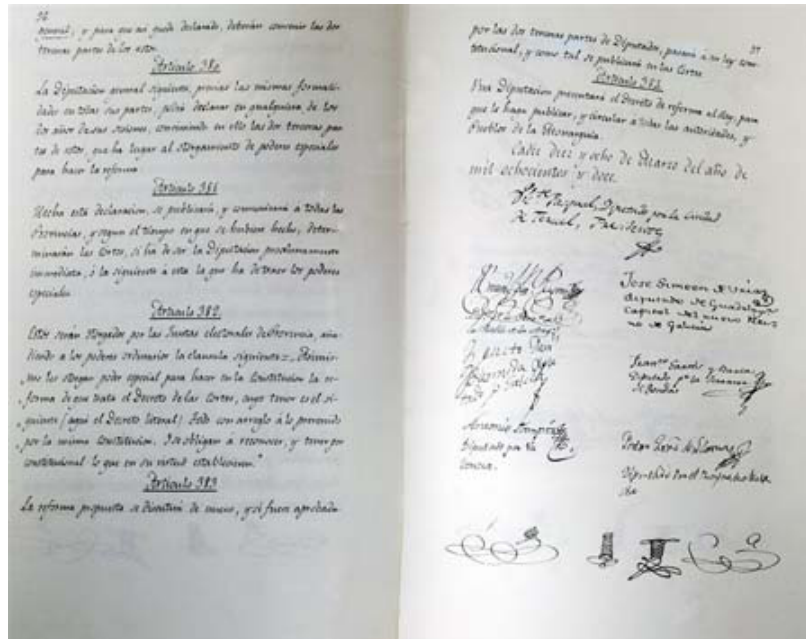 96
general, y para que así quede declarado, deberán convenir las dos
terceras partes de los votos.
Artículo 380
La Diputacion general siguiente, previas las mismas formali-
dades en todas sus partes, podrá declarar en qualquiera de los
dos años de sus sesiones, conviniendo en ello las dos terceras par-
tes de votos, que ha lugar al otorgamiento de poderes especiales
para hacer la reforma
Artículo 381
Hecha esta declaracion, se publicará, y comunicará a todas las
Provincias, y segun el tiempo en que se hubiere hecho, deter-
minarán las Cortes, si ha de ser la Diputacion proximamente
inmediata, ó la siguiente á esta la que ha de traer los poderes
especiales
Artículo 382
Estos serán otorgados por las Juntas electorales de Provincia, aña-
diendo a los poderes ordinarios la clausula siguiente =
les otorgan poder especial para hacer en la Constitucion la re-
forma de que trata el Decreto de las Cortes, cuyo tenor es el si-
guiente (aquí el Decreto literal) Todo con arreglo á lo prevenido
por la misma Constitucion. Y se obligan a reconocer, y tener por
constitucional lo que en su virtud establecieren."
Artículo 383
La reforma propuesta se discutirá de nuevo, y si fuere aprobada
97
por las dos terceras partes de Diputados, pasará á ser ley cons-
titucional, y como tal se publicará en las Cortes
Artículo 384
Una Diputacion presentará el Decreto de reforma al Rey, para
que le haga publicar, y circular a todas las autoridades, y
Pueblos de la Monarquía.
Cadiz diez y ocho de Marzo del año de
mil ochocientos y doce.
Pasqual, Diputado por la Ciudad
de Teruel, Presidente
Jose Simeon de Uria
diputado de Guadalaxara
capital del nuevo Rey-
no de Galicia
Diputado pr la
de Ronda
Antonio
Diputado por Va
lencia.
Diputado por el